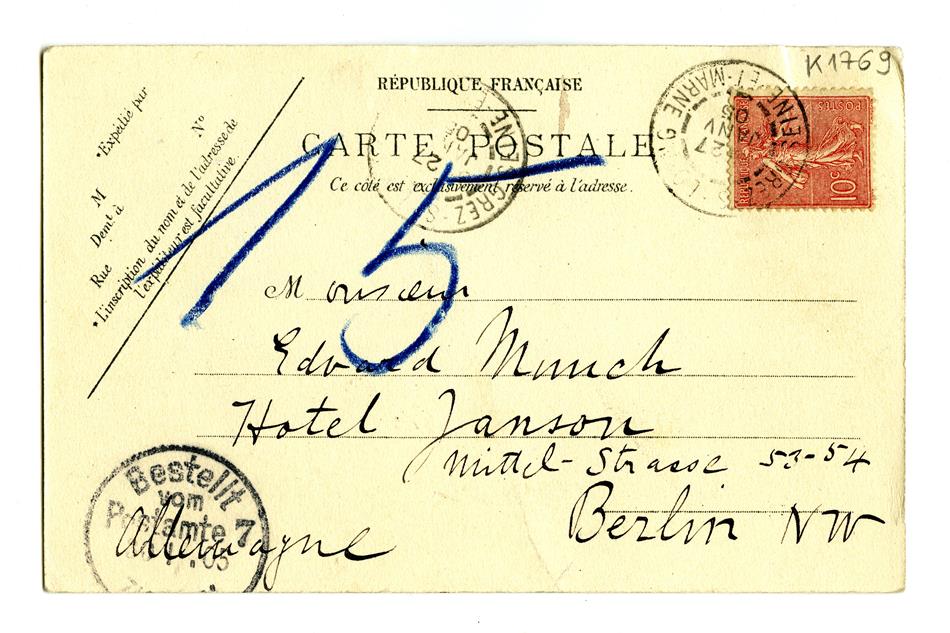 K1769
RÉPUBLIQUE FRANÇAISE
CARTE POSTALE
Ce côté est exclusivement réservé à l'adresse.
*Expédié par
M
Demt à
Rue
No
*L'inscription du nom et de l'adresse de
l'expéditeur est facultative.
15
GREZ-S
27
SEINE-ET-MARNE
27
POSTES
10c
Monsieur
Edvard Munch
Hotel Janson
Mittel-Strasse 53-54
Berlin NW
Allemagne
Bestellt
vom
Postamte 7